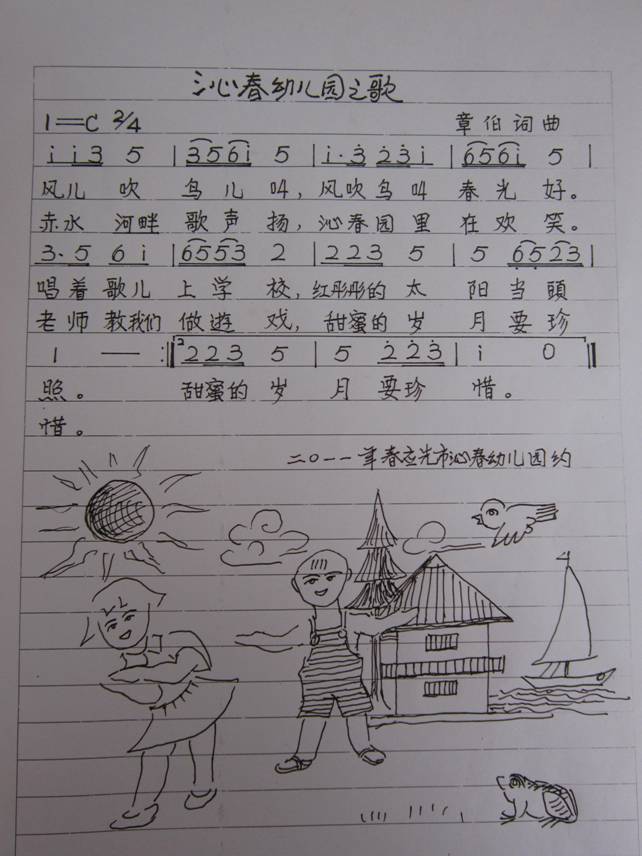 沁春幼儿园之歌
1=C 2/4 章伯词曲
i i 3 5 | 3 5 6 i 5 | i · 3 2 3 i | 6 5 6 i 5 |
风儿 吹 鸟儿 叫, 风吹鸟叫 春光 好。
赤水 河畔 歌声 扬, 沁春园里 在欢 笑。
3 · 5 6 i | 6 5 5 3 2 | 2 2 3 5 | 5 6 5 2 3 |
唱着 歌儿 上学 校, 红彤彤的 太 阳当頭
老师 教我们 做遊 戏, 甜蜜的 岁 月要珍
1 — :‖ 2 2 2 3 5 | 5 2 2 3 | i 0 ‖
照。 甜蜜的 岁 月 要珍 惜。
惜。
二〇一一年春应光市沁春幼儿园约